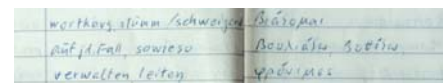 wortkarg, stumm / schweigend βιάζομαι
auf jd. Fall, sowieso
verwalten leiten φρόνιμος